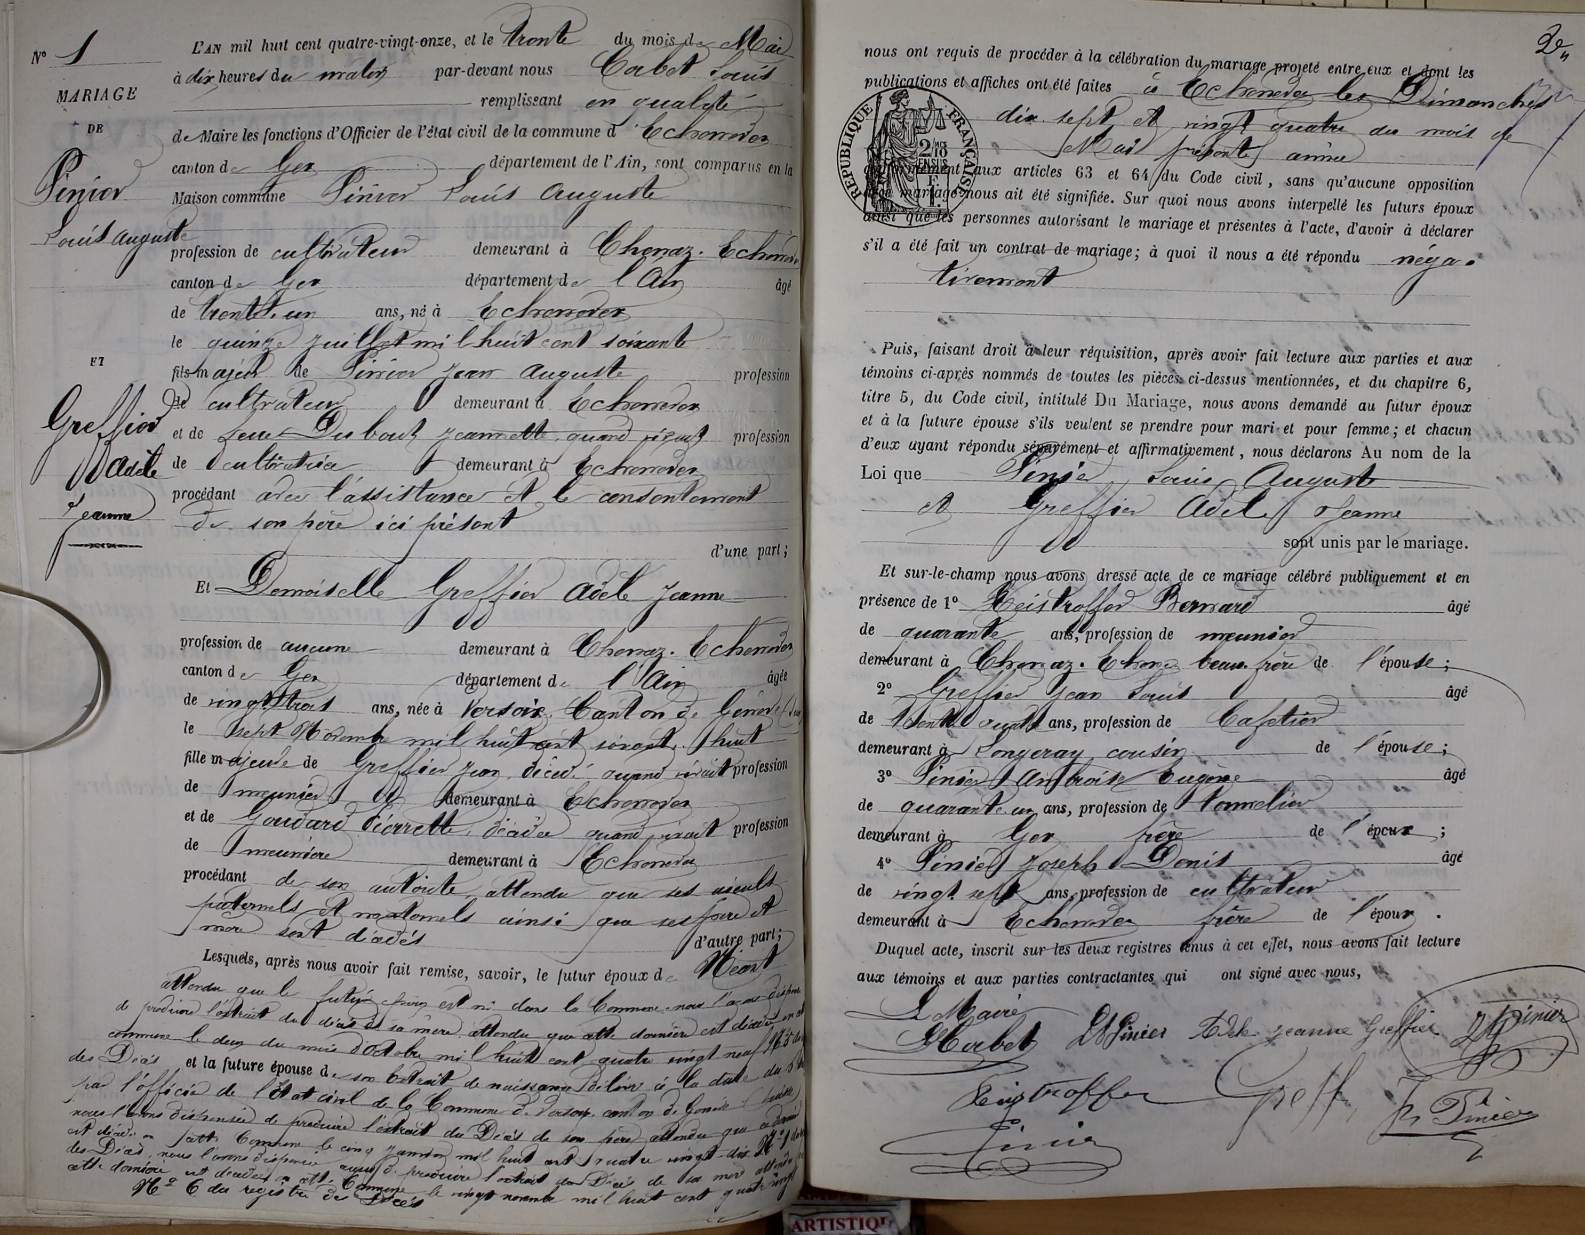 N° 1
MARIAGE
DE
Pinier
Louis Auguste
ET
Greffier
Adèle
Jeanne
L'AN mil huit cent quatre-vingt-onze, et le trente du mois de Mai
à dix heures du matin par-devant nous Corbet Louis
remplissant en qualité
de Maire les fonctions d'Officier de l'état civil de la commune d'Echenevex
canton de Gex département de l'Ain, sont comparus en la
Maison commune Pinier Louis Auguste
profession de cultivateur demeurant à Chenaz. Echenevex
canton de Gex département de l'Ain âgé
de trente un ans, né à Echenevex
le quinze juillet mil huit cent soixante
fils majeur de Pinier Jean Auguste profession
de cultivateur demeurant à Echenevex
et de feue Dubout Jeannette quand vivait profession
de cultivatrice demeurant à Echenevex
procédant avec l'assistance et le consentement
de son père ici présent
d'une part;
Et Demoiselle Greffier Adèle Jeanne
profession de aucune demeurant à Chenaz. Echenevex
canton de Gex département de l'Ain âgée
de vingt trois ans, née à Versoix Canton de Genève
le sept Novembre mil huit cent soixante huit
fille majeure de Greffier Jean décédé quand vivait profession
de meunier demeurant à Echenevex
et de Goudard Pierrette, décédée quand vivait profession
de meunière demeurant à Echenevex
procédant de son autorité attendu que ses aieuls
paternels et maternels ainsi que ses père et
mère sont décédés d'autre part;
Lesquels, après nous avoir fait remise, savoir, le futur époux de Néant
attendu que le futur époux est né dans la Commune nous l'avons dispensé
de produire l'extrait du décès de sa mère attendu que cette dernière est décédée en cette
commune le deux du mois d'octobre mil huit cent quatre vingt neuf
des Décès et la future épouse de son Extrait de naissance délivré à la date du
par l'officier de l'état civil de la Commune de Versoix canton de Genève Suisse
nous l'avons dispensée de produire l'extrait du Décès de son père attendu que ce dernier
est décédé en cette Commune le cinq janvier mil huit cent quatre vingt dix N° 1
des Décès, nous l'avons dispensée aussi de produire l'extrait du Décès de sa mère attendu
cette dernière est décédée en cette Commune le vingt novembre mil huit cent quatre vingt
N° 6 du registre des Décès
2e
nous ont requis de procéder à la célébration du mariage projeté entre eux et dont les
publications et affiches ont été faites à Echenevex les Dimanches
dix sept et vingt quatre du mois de
Mai présente année
RÉPUBLIQUE FRANÇAISE
2/10 EN SUS
conformément aux articles 63 et 64 du Code civil, sans qu'aucune opposition
audit mariage nous ait été signifiée. Sur quoi nous avons interpellé les futurs époux
ainsi que les personnes autorisant le mariage et présentes à l'acte, d'avoir à déclarer
s'il a été fait un contrat de mariage; à quoi il nous a été répondu néga-
tivement
Puis, faisant droit à leur réquisition, après avoir fait lecture aux parties et aux
témoins ci-après nommés de toutes les pièces ci-dessus mentionnées, et du chapitre 6,
titre 5, du Code civil, intitulé Du Mariage, nous avons demandé au futur époux
et à la future épouse s'ils veulent se prendre pour mari et pour femme; et chacun
d'eux ayant répondu séparément et affirmativement, nous déclarons Au nom de la
Loi que Pinier Louis Auguste
et Greffier Adèle Jeanne
sont unis par le mariage.
Et sur-le-champ nous avons dressé acte de ce mariage célébré publiquement et en
présence de 1° Keistroffer Bernard âgé
de quarante ans, profession de meunier
demeurant à Chenaz. Echene beau frère de l'épouse;
2° Greffier Jean Louis âgé
de ans, profession de Cafetier
demeurant à Longeray cousin de l'épouse;
3° Pinier Ambroise Eugène âgé
de quarante un ans, profession de tonnelier
demeurant à Gex frère de l'époux;
4° Pinier Joseph Denis âgé
de vingt sept ans, profession de cultivateur
demeurant à Echenevex frère de l'époux.
Duquel acte, inscrit sur les deux registres tenus à cet effet, nous avons fait lecture
aux témoins et aux parties contractantes qui ont signé avec nous,
Le Maire
Corbet Ls Pinier Adèle Jeanne Greffier Pinier
Keistroffer Greff Pinier
Pinier
ARTISTIQU